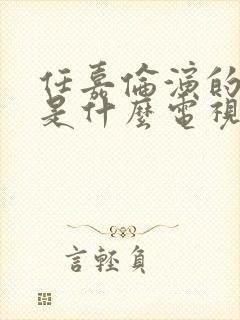 任嘉倫演的
是什麼電視
言輕負